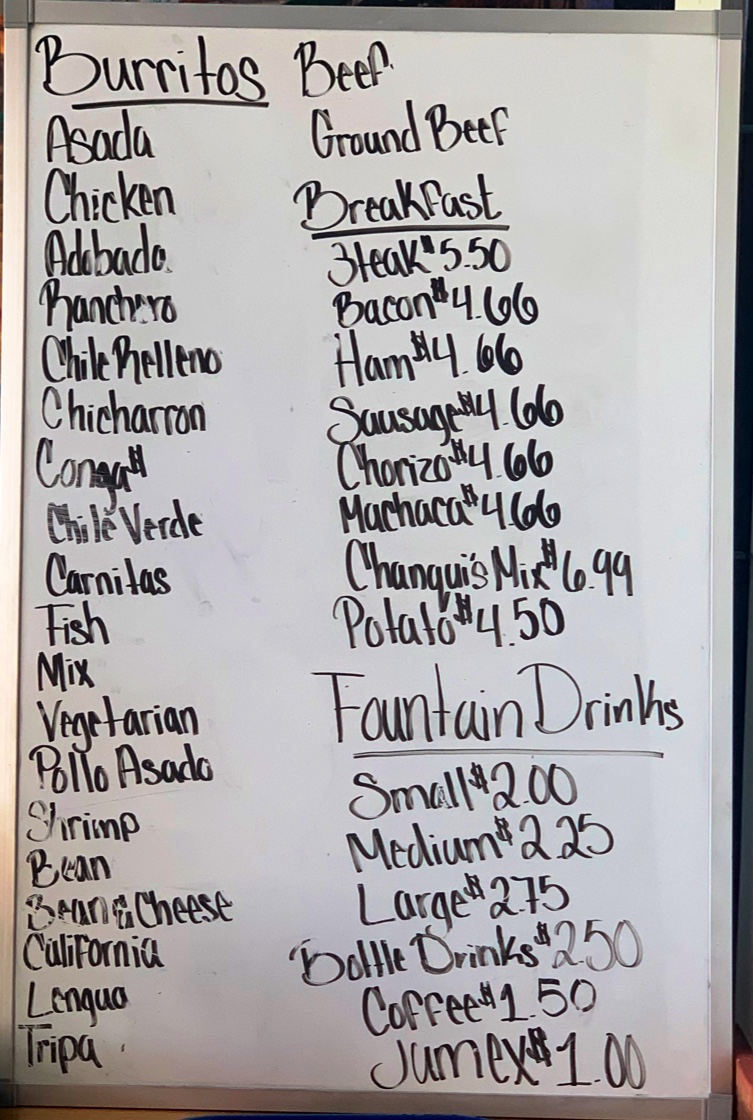 Burritos
Asada
Chicken
Adobada
Ranchero
Chile Relleno
Chicharron
Conga $
Chile Verde
Carnitas
Fish
Mix
Vegetarian
Pollo Asado
Shrimp
Bean
Bean & Cheese
California
Lengua
Tripa
Beef
Ground Beef
Breakfast
Steak $5.50
Bacon $4.66
Ham $4.66
Sausage $4.66
Chorizo $4.66
Machaca $4.66
Chanqui's Mix $6.99
Potato $4.50
Fountain Drinks
Small $2.00
Medium $2.25
Large $2.75
Bottle Drinks $2.50
Coffee $1.50
Jumex $1.00